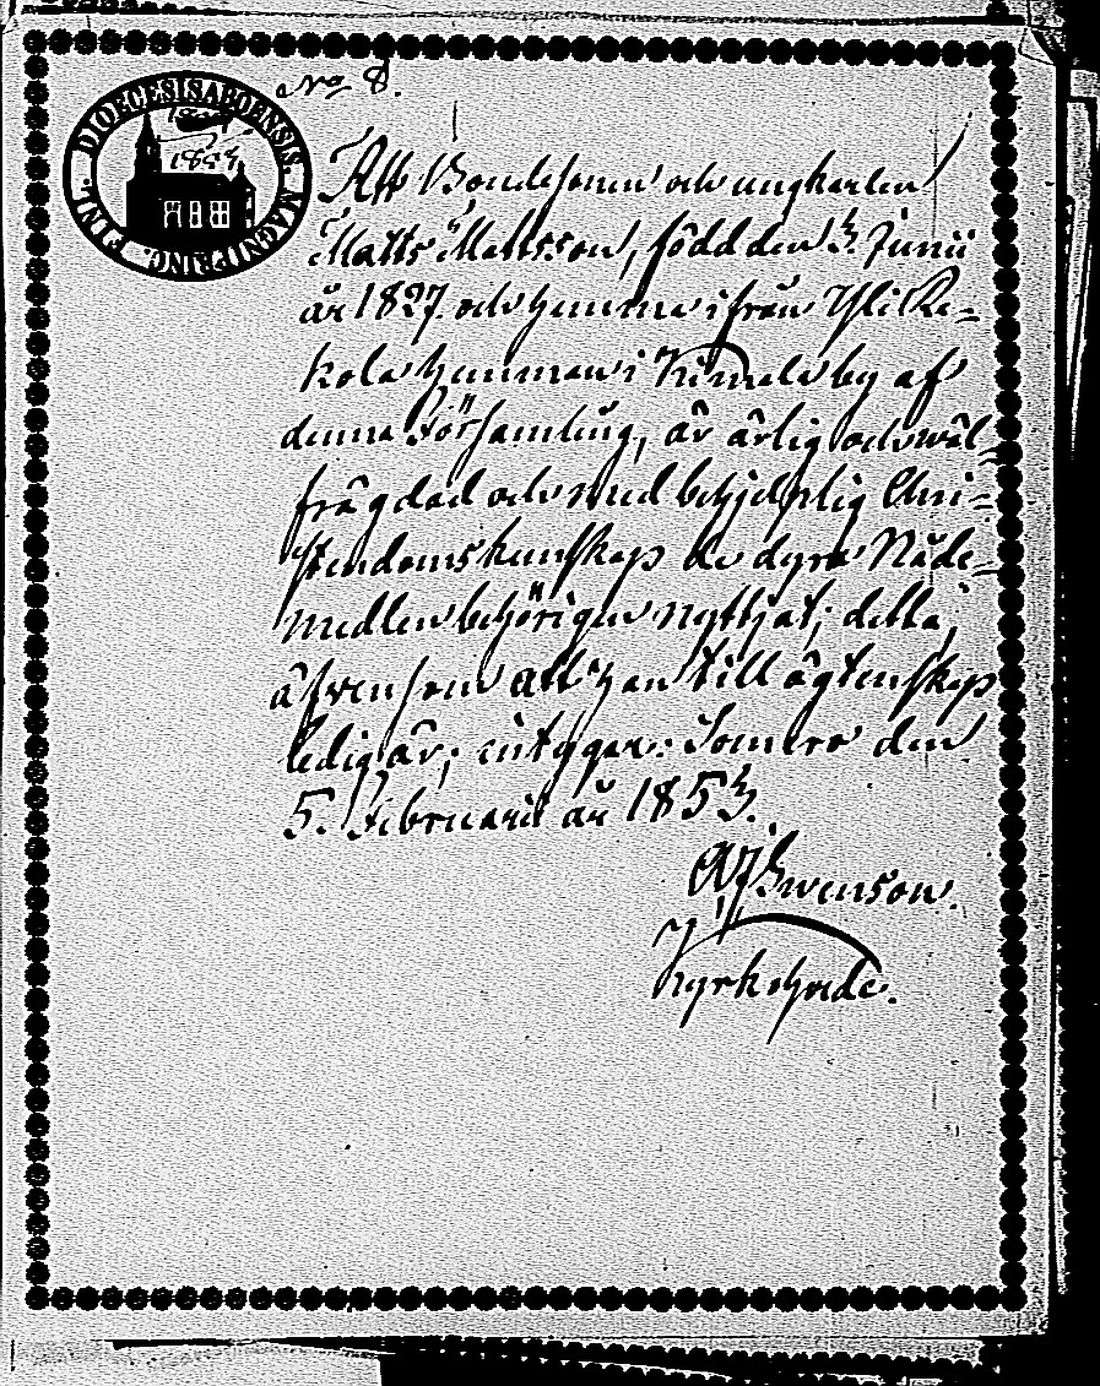 No 8.
DIOECESIS ABOENSIS. MAGNI PRINC. FINL.
1853
Att Bondesonen och ungkarlen
Matts Mattsson, född den 3. Junii
år 1827. och hemma ifrån Yli Ke-
kola hemman i Kimala by af
denna Församling, är ärlig och wäl-
frägdad och med behjelplig Chri-
stendomskunskap de dyra Nåde-
medlen behörigen nyttjat; detta,
äfvensom att han till ägtenskap
ledig är; intygar: Somero den
5. Februarii år 1853.
Swenson.
Kyrkoherde.